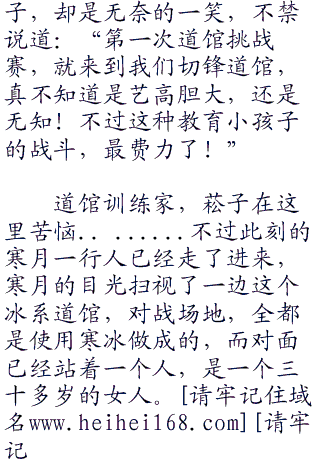 子，却是无奈的一笑，不禁
说道：“第一次道馆挑战
赛，就来到我们切锋道馆，
真不知道是艺高胆大，还是
无知！不过这种教育小孩子
的战斗，最费力了！”
道馆训练家，菘子在这
里苦恼........不过此刻的
寒月一行人已经走了进来，
寒月的目光扫视了一边这个
冰系道馆，对战场地，全都
是使用寒冰做成的，而对面
已经站着一个人，是一个三
十多岁的女人。[请牢记住域
名www.heihei168.com][请牢
记